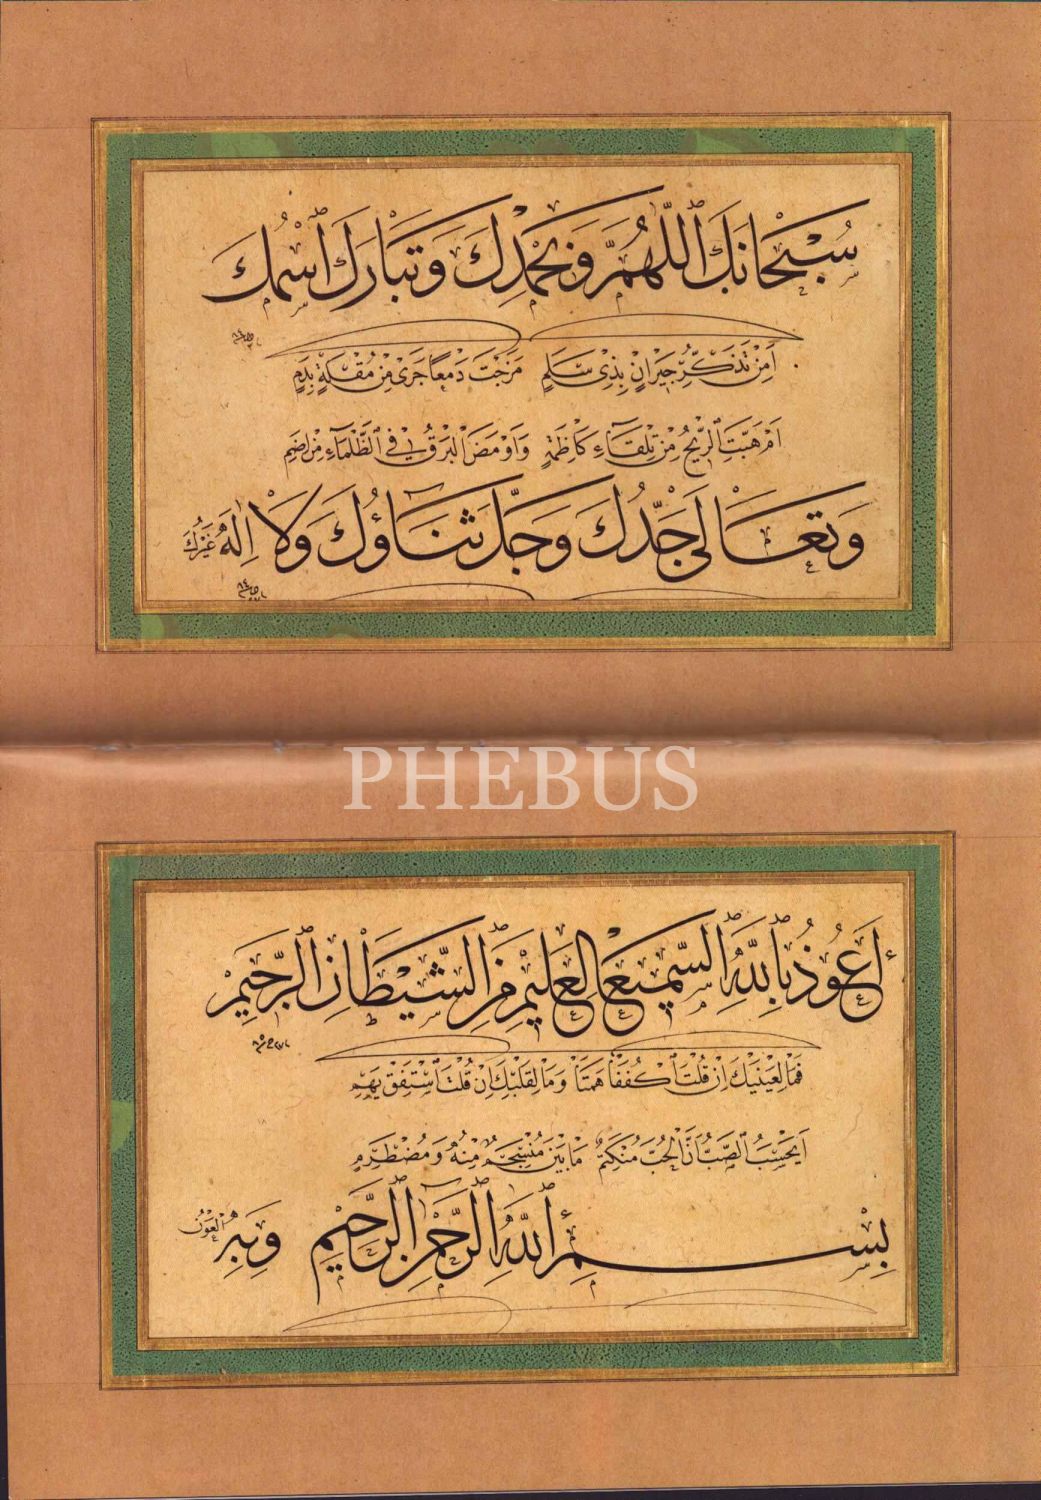 سُبْحَانَكَ اللّٰهُمَّ وَبِحَمْدِكَ وَتَبَارَكَ اسْمُكَ
اَمِنْ تَذَكُّرِ جِيرَانٍ بِذِي سَلَمٍ مَزَجْتَ دَمْعًا جَرٰى مِنْ مُقْلَةٍ بِدَمٍ
اَمْ هَبَّتِ الرِّيحُ مِنْ تِلْقَاءِ كَاظِمَةٍ وَاَوْمَضَ الْبَرْقُ فِي الظَّلْمَاءِ مِنْ اِضَمِ
وَتَعَالٰى جَدُّكَ وَجَلَّ ثَنَاؤُكَ وَلَا اِلٰهَ غَيْرُكَ
PHEBUS
أَعُوذُ بِاللّٰهِ السَّمِيعِ الْعَلِيمِ مِنَ الشَّيْطَانِ الرَّجِيمِ
فَمَا لِعَيْنَيْكَ اِنْ قُلْتَ اكْفُفَا هَمَتَا وَمَا لِقَلْبِكَ اِنْ قُلْتَ اسْتَفِقْ يَهِمِ
اَيَحْسَبُ الصَّبُّ اَنَّ الْحُبَّ مُنْكَتِمٌ مَا بَيْنَ مُنْسَجِمٍ مِنْهُ وَمُضْطَرِمِ
بِسْمِ اللّٰهِ الرَّحْمٰنِ الرَّحِيمِ وَبِهِ الْعَوْنُ